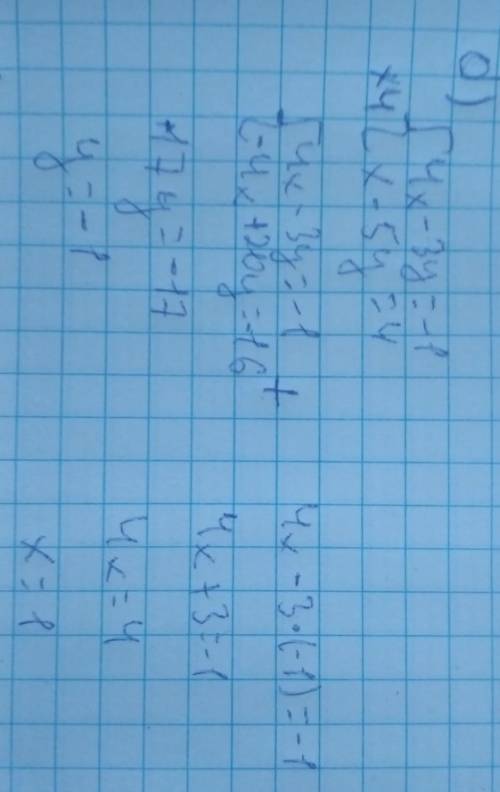 0)
{ 4x - 3y = -1
x4 { x - 5y = 4
{ 4x - 3y = -1
{ -4x + 20y = -16 +
17y = -17
y = -1
4x - 3·(-1) = -1
4x + 3 = -1
4x = 4
x = 1